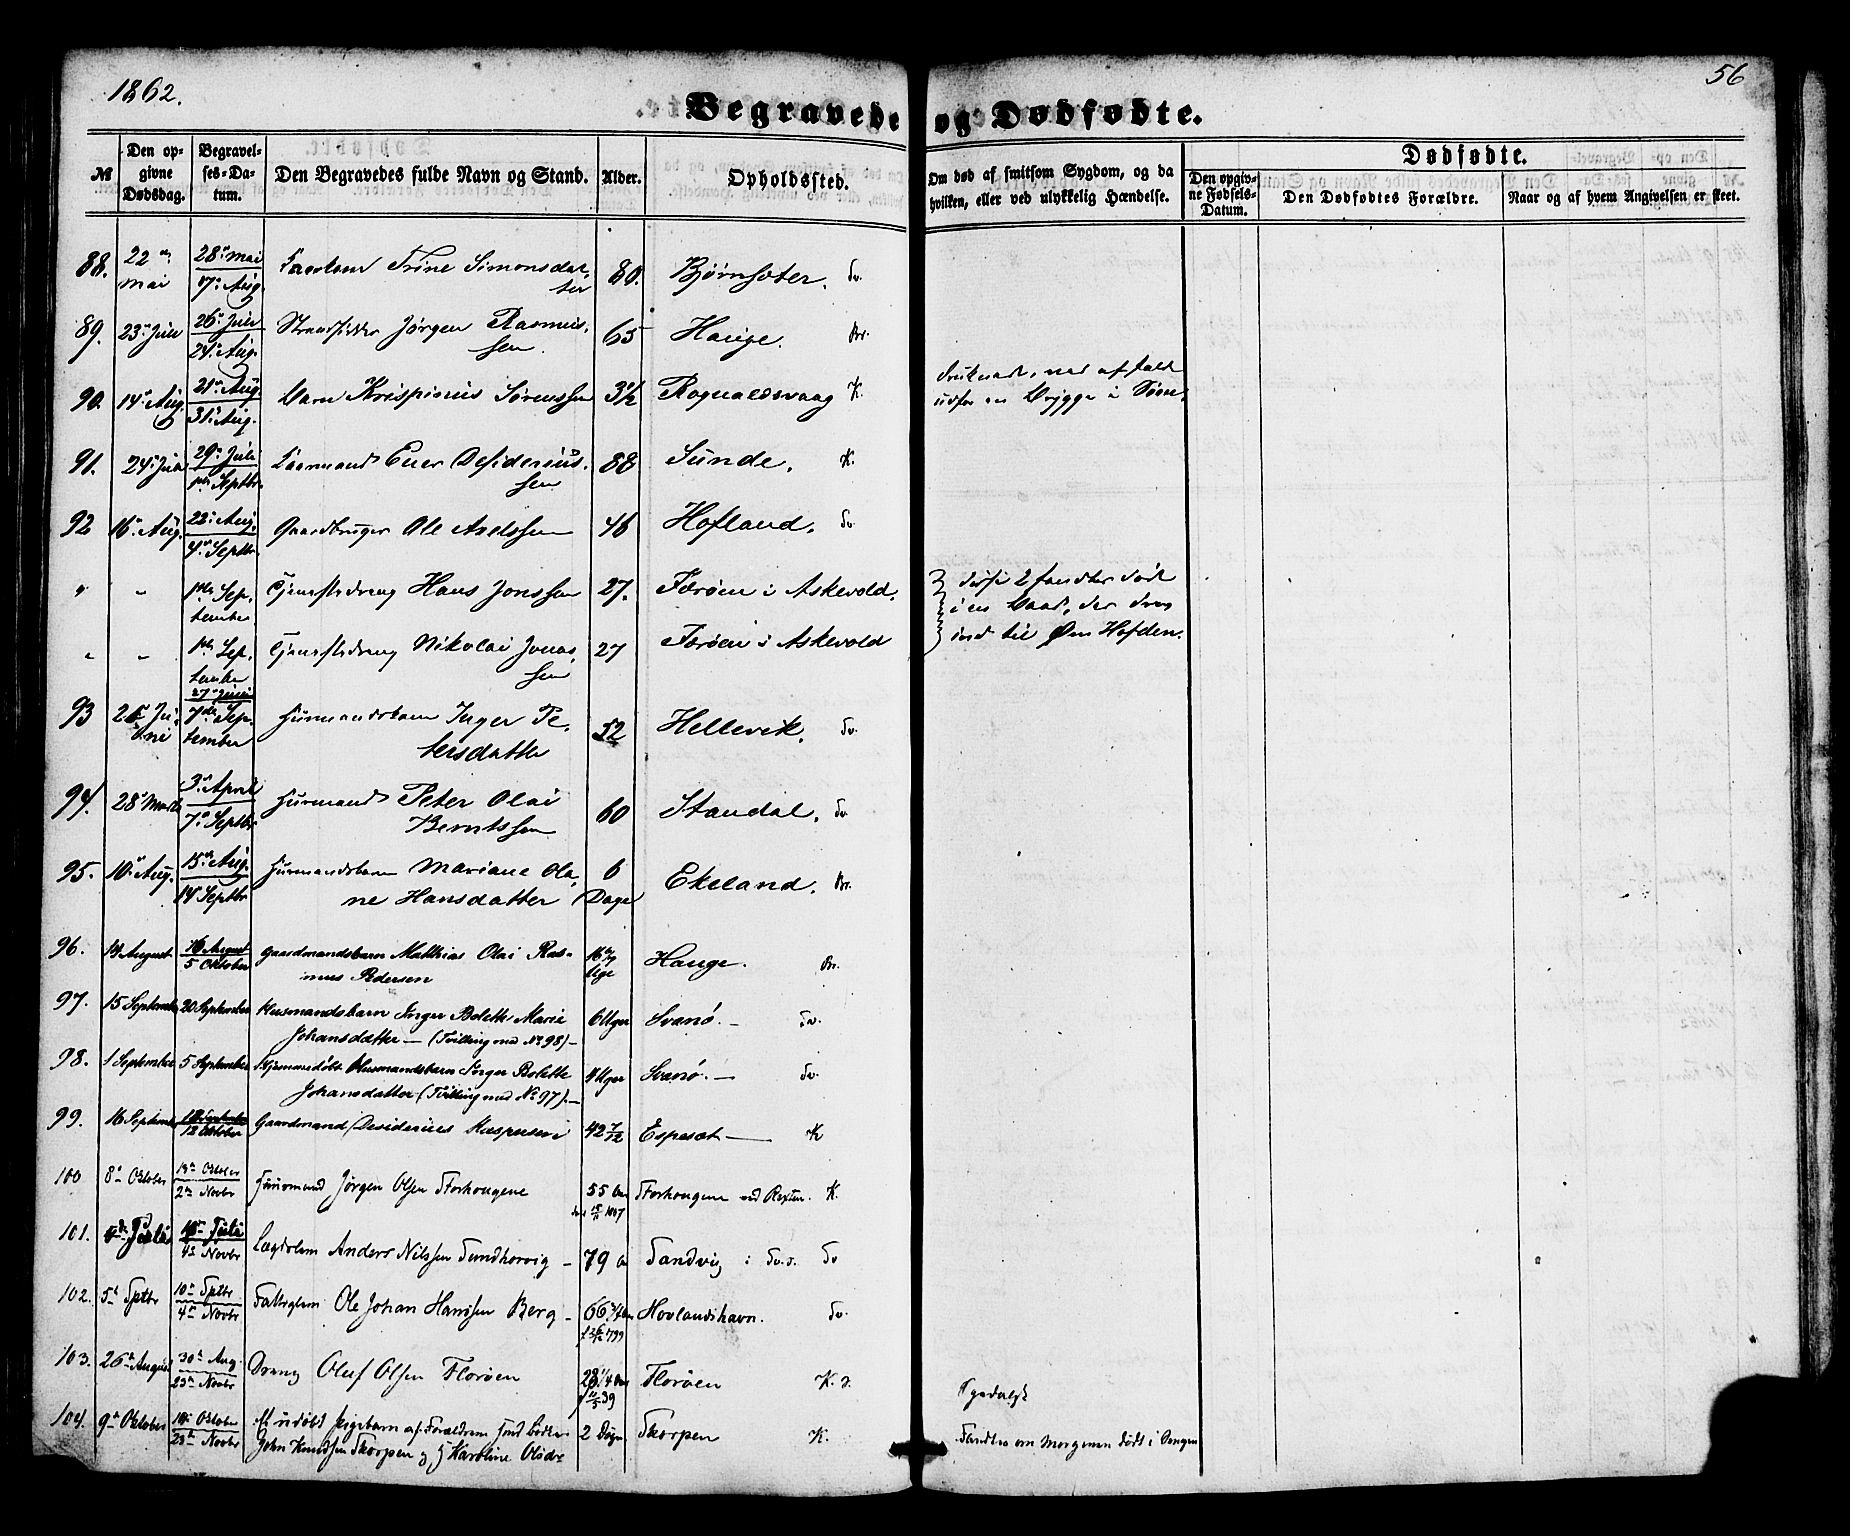 1862.
56
Begravede og Dødfødte.
№
Den op-
givne
Dødsdag.
Begravel-
ses-Da-
tum.
Den Begravedes fulde Navn og Stand.
Alder.
Opholdssted.
Om død af smitsom Sygdom, og da
hvilken, eller ved ulykkelig Hændelse.
Dødfødte.
Den opgiv-
ne Fødsels-
Datum.
Den Dødfødtes Forældre.
Naar og af hvem Angivelsen er skeet.
88. 22 mai 28 mai 17 Aug. Trine Simonsdat-
ter 80. Bjørnsæter. Sv.
89. 23 Juli 26 Juli 24 Aug. Strandsidder Jørgen Rasmus-
sen. 65 Hauge. Br.
90. 14 Aug. 21 Aug. 31 Aug. Barn Krispinius Sørenssen 3½ Rognaldsvaag K. druknede, ved at falde
udfor en Brygge i Søen.
91. 24 Juli 29 Juli Septbr. Desiderius-
sen 88 Sunde. K.
92 16 Aug. 22 Aug. 4 Septbr. Gaardbruger Ole Axelssen 46 Hofland. Sv.
" " Sep-
tember Tjenestedreng Hans Jonssen 27. Færøen i Askevold. disse 2 fandtes døde
i en Baad, der drev
" " Sep-
tember Tjenestedreng Nikolai Jonas-
sen 27 Færøen i Askevold ind til Øen Hofden.
93 Ju-
ni 27 Juni 7de Sep-
tember Inger Pe-
tersdatter 52 Hellevik. Sv.
94. 28 Marts 3 April 7 Septbr Husmand Peter Olai
Berntssen 60 Standal. Sv.
95. 10 Aug. 15 Aug. 14 Septbr Husmandsbarn Mariane Ola-
ne Hansdatter 6
Dage Ekeland. Br.
96. 14 August. 16 August 5 Oktober Gaardmandsbarn Matthias Olai Ras-
mus Pedersen Uge Hauge. Br.
97. 15 September 20 September Husmandsbarn Inger Bolette Marie
Johansdatter — (Tvilling med No 98) — 6 Uger Svanø. — Sv.
98. 1 September 5 September Hjemmedøbt Husmandsbarn Inger Bolette
Johansdatter (Tvilling med No 97). — 4 Uger Svanø. — Sv.
99. 16 September 12 Oktober Gaardmand Desiderius Kaspersen 42 7/12 Espeset — K
100 8 Oktober 13 Oktober 2 Novbr Huusmand Jørgen Olsen Storhougene 55 Storhougene ved Rexten. K.
101. Juli Juli 4 Novbr Lægdslem Anders Nilssen 79 Sandvig i Sv.s. Sv
102. 5 Sptbr 10 Sptbr 4 Novbr Fattiglem Ole Johan Hanssen Berg — 66 Hovlandshavn. Sv.
103. 26 August 30 Aug. 23 Novbr Dreng Oluf Olsen Florøen 23 1/4 Florøen K. s.
104. 9 Oktober Oktober 23 Novbr Et udøbt Pigebarn af Forældrene
John Knudsen Skorpen og Karoline Olsdr 2 Døgn Skorpen K. Fandtes om Morgenen dødt i Sengen